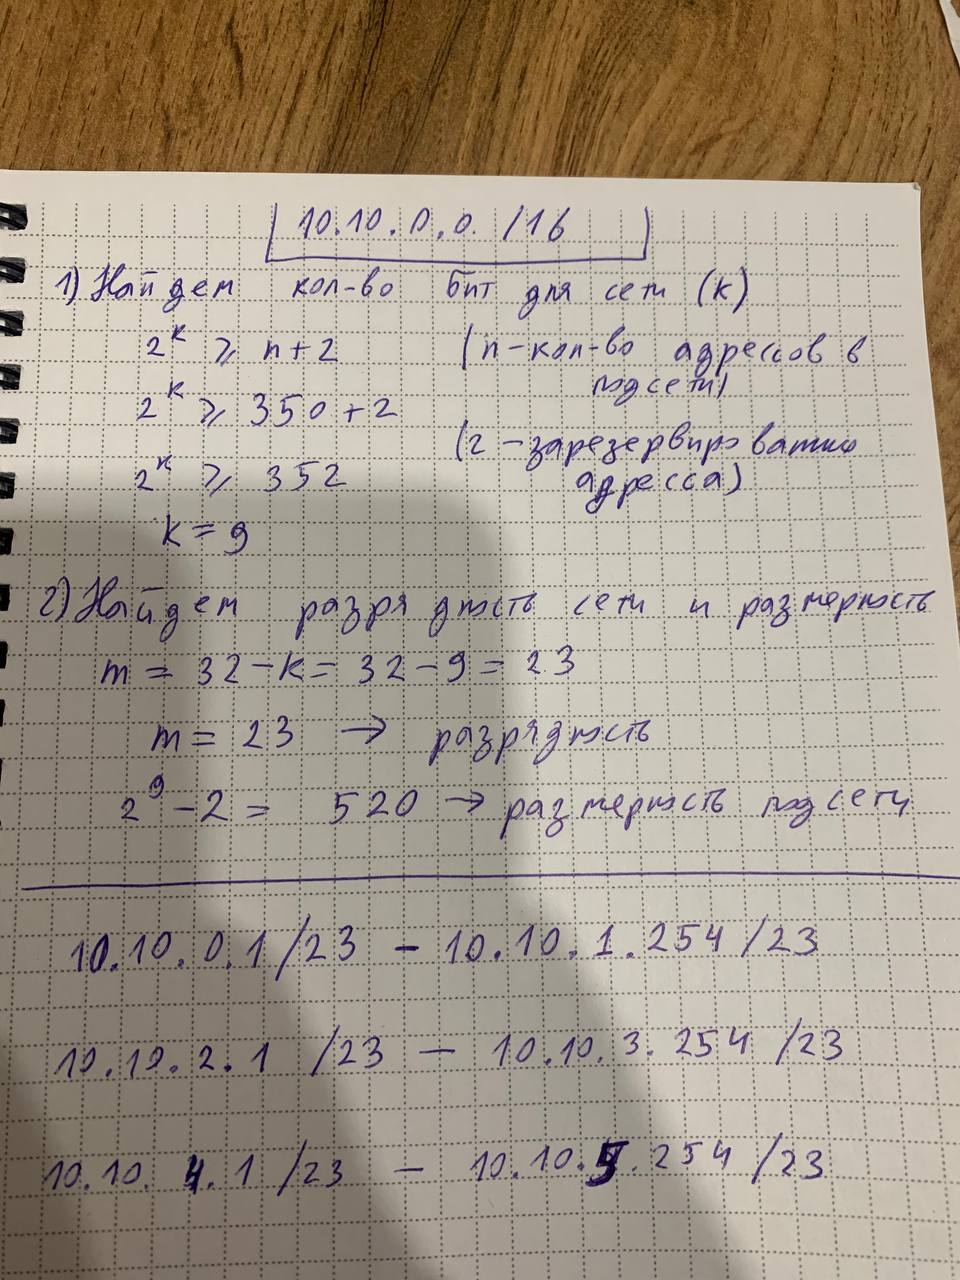 10.10.0.0. /16
1) Найдем кол-во бит для сети (k)
2^k ≥ n+2 (n-кол-во адрессов в
подсети)
2^k ≥ 350+2
(2-зарезервированно
адресса)
2^k ≥ 352
k = 9
2) Найдем разрядность сети и размерность
m = 32-k = 32-9 = 23
m = 23 → разрядность
2^9-2 = 520 → размерность подсети
10.10.0.1/23 - 10.10.1.254/23
10.10.2.1 /23 - 10.10.3.254 /23
10.10.4.1 /23 - 10.10.5.254 /23